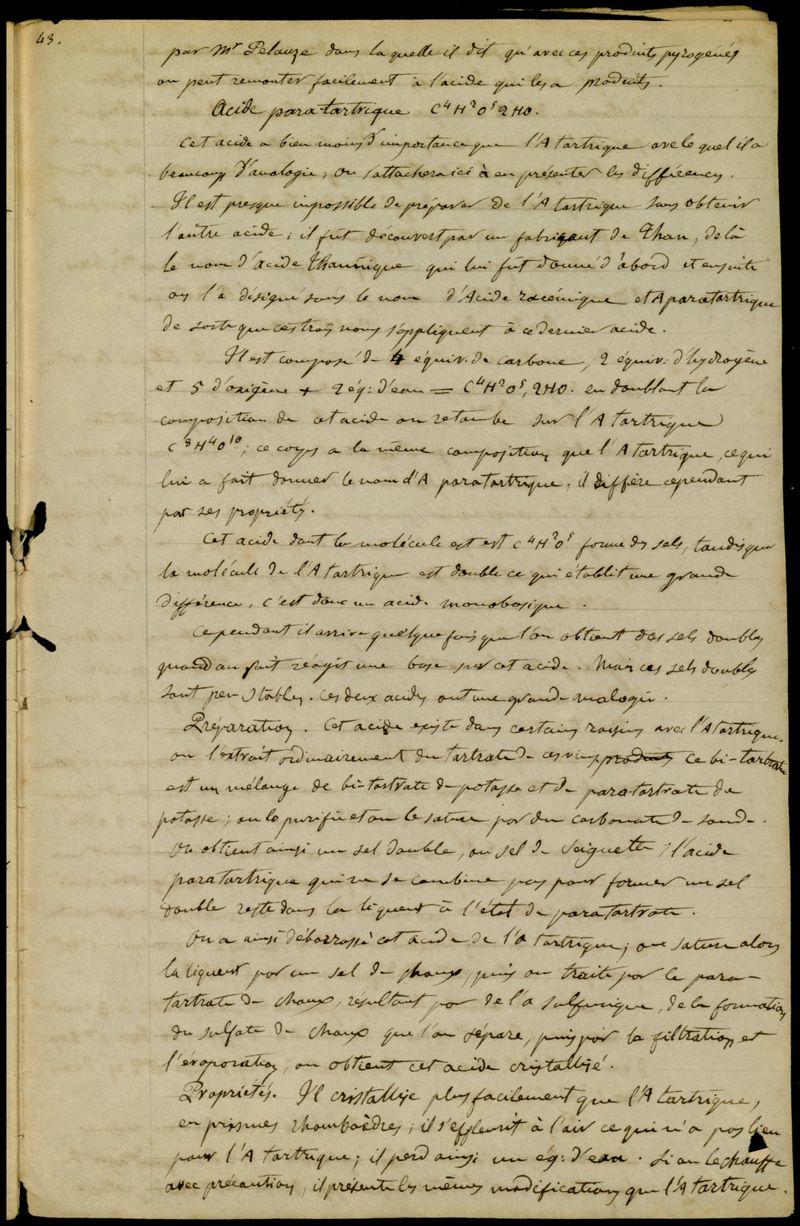 43.
par Mr Pelouze dans laquelle il dit qu'avec ces produits pyrogénés
on peut remonter facilement à l'acide qui les a produits.
Acide paratartrique C⁴H²O⁵ 2HO.
Cet acide a bien moins d'importance que l'A tartrique avec lequel il a
beaucoup d'analogie; on s'attachera ici à en présenter les différences.
Il est presque impossible de préparer de l'A tartrique sans obtenir
l'autre acide; il fut découvert par un fabriquant de Than, de là
le nom d'acide Thannique qui lui fut donné d'abord et ensuite
on l'a désigné sous le nom d'Acide racémique et A paratartrique
de sorte que ces trois noms s'appliquent à ce dernier acide.
Il est composé de 4 équiv: de carbone, 2 équiv: d'hydrogène
et 5 d'oxigène + 2 éq: d'eau = C⁴H²O⁵, 2HO. en doublant la
composition de cet acide on retombe sur l'A tartrique
C⁸H⁴O¹⁰; ce corps a la même composition que l'A tartrique, ce qui
lui a fait donner le nom d'A paratartrique, il diffère cependant
par ses propriétés.
Cet acide dont la molécule est est C⁴H²O⁵ forme des sels, tandis que
la molécule de l'A tartrique est double ce qui établit une grande
différence, c'est donc un acide monobasique.
Cependant il arrive quelque fois que l'on obtient des sels doubles
quand on fait réagir une base sur cet acide. Mais ces sels doubles
sont peu stables. Ces deux acides ont une grande analogie.
Préparation. Cet acide existe dans certains raisins avec l'A tartrique.
on l'extrait ordinairement du tartrate de ces vins produits ce bi-tartrate
est un mélange de bi-tartrate de potasse et de paratartrate de
potasse; on le purifie et on le sature par du carbonate de soude.
On obtient ainsi un sel double, ou sel de Seignette; l'acide
paratartrique qui ne se combine pas pour former un sel
double reste dans la liqueur à l'état de paratartrate.
On a ainsi débarrassé cet acide de l'A tartrique; on sature alors
la liqueur par un sel de chaux, puis on traite par le para-
tartrate de chaux, résultant par de l'a sulfurique, de la formation
du sulfate de chaux que l'on sépare, puis par la filtration et
l'évaporation, on obtient cet acide cristallisé.
Propriétés. Il cristallise plus facilement que l'A tartrique,
en prismes rhomboèdres; il s'effleurit à l'air ce qui n'a pas lieu
pour l'A tartrique; il perd ainsi un éq: d'eau. Si on le chauffe
avec précaution, il présente les mêmes modifications que l'A tartrique.